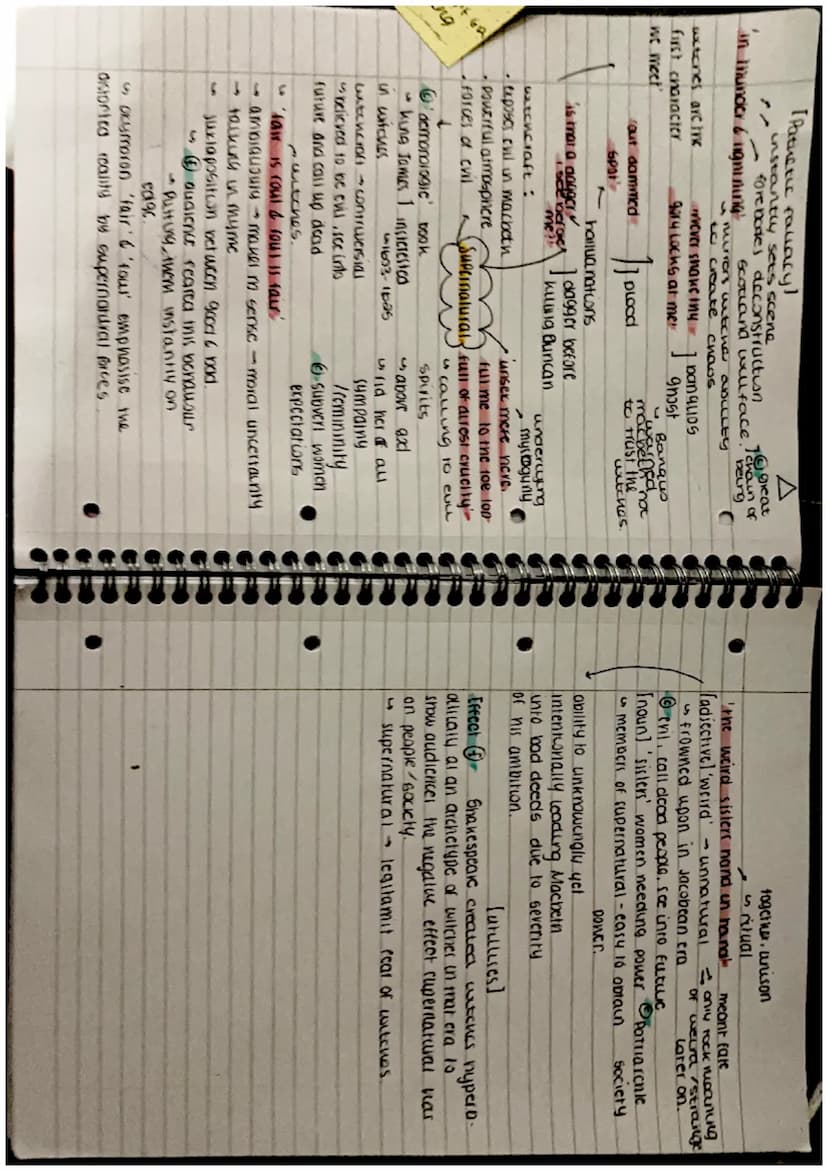 [Pathetic fallacy]
↳ instantly sets scene
↳ forebodes deconstruction
Scotland will face.
'in thunder & lightning'
↳ mirrors witches ability
to create chaos
Ⓒ great
chain of
being
witches are the
first character
we meet'
never shake thy
gory locks at me'
] banquos
ghost
↳ Banquo
warned
macbeth not
to trust the
witches.
'out damned
spot'
] blood
hallucinations
'is that a dagger
i see before
me?'
] dagger before
killing Duncan
underlying
→ mysogyny
witchcraft :
• exposes evil in macbeth
• powerful atmosphere
• forces of evil
supernatural
'unsex mere here.
fill me to the toe top
full of direst cruelty'
↳ calling to evil
spirits
↳ above god
↳ rid her of all
sympathy
/femininity
Ⓒ subvert women
expectations
Ⓒ 'demonologie' book
↳ King James I interested
in witches ↳ 1603-1625
witchcraft → controversial
↳ believed to be evil, see into
future and call up dead
→ witches.
↳ 'fair is foul & foul is fair'
→ ambiguously → makes no sense → moral uncertainty
→ talking in rhyme
→ juxtaposition between good & bad
↳ Ⓔ audience feared this behaviour
→ putting them instantly on
edge.
↳ oxymoron 'fair' & 'foul' emphasise the
distorted reality by supernatural forces.
together, unison
↳ ritual
'the weird sisters hand in hand'
[adjective] 'weird' → unnatural
meant fate
→ only took meaning
of weird / strange
later on.
↳ frowned upon in Jacobean era
Ⓒ evil, call dead people, see into future
[noun] 'sisters' women needing power
Ⓒ Patriarchle
society
↳ members of supernatural - easy to obtain
power.
ability to unknowingly yet
intentionally leading Macbeth
into bad deeds due to severity
of his ambition.
[utillises]
Effect Ⓔ Shakespeare created witches hypero-
olically as an archetype of witches in that era to
show audiences the negative effect supernatural has
on people/society.
↳ supernatural → legitamit fear of witches